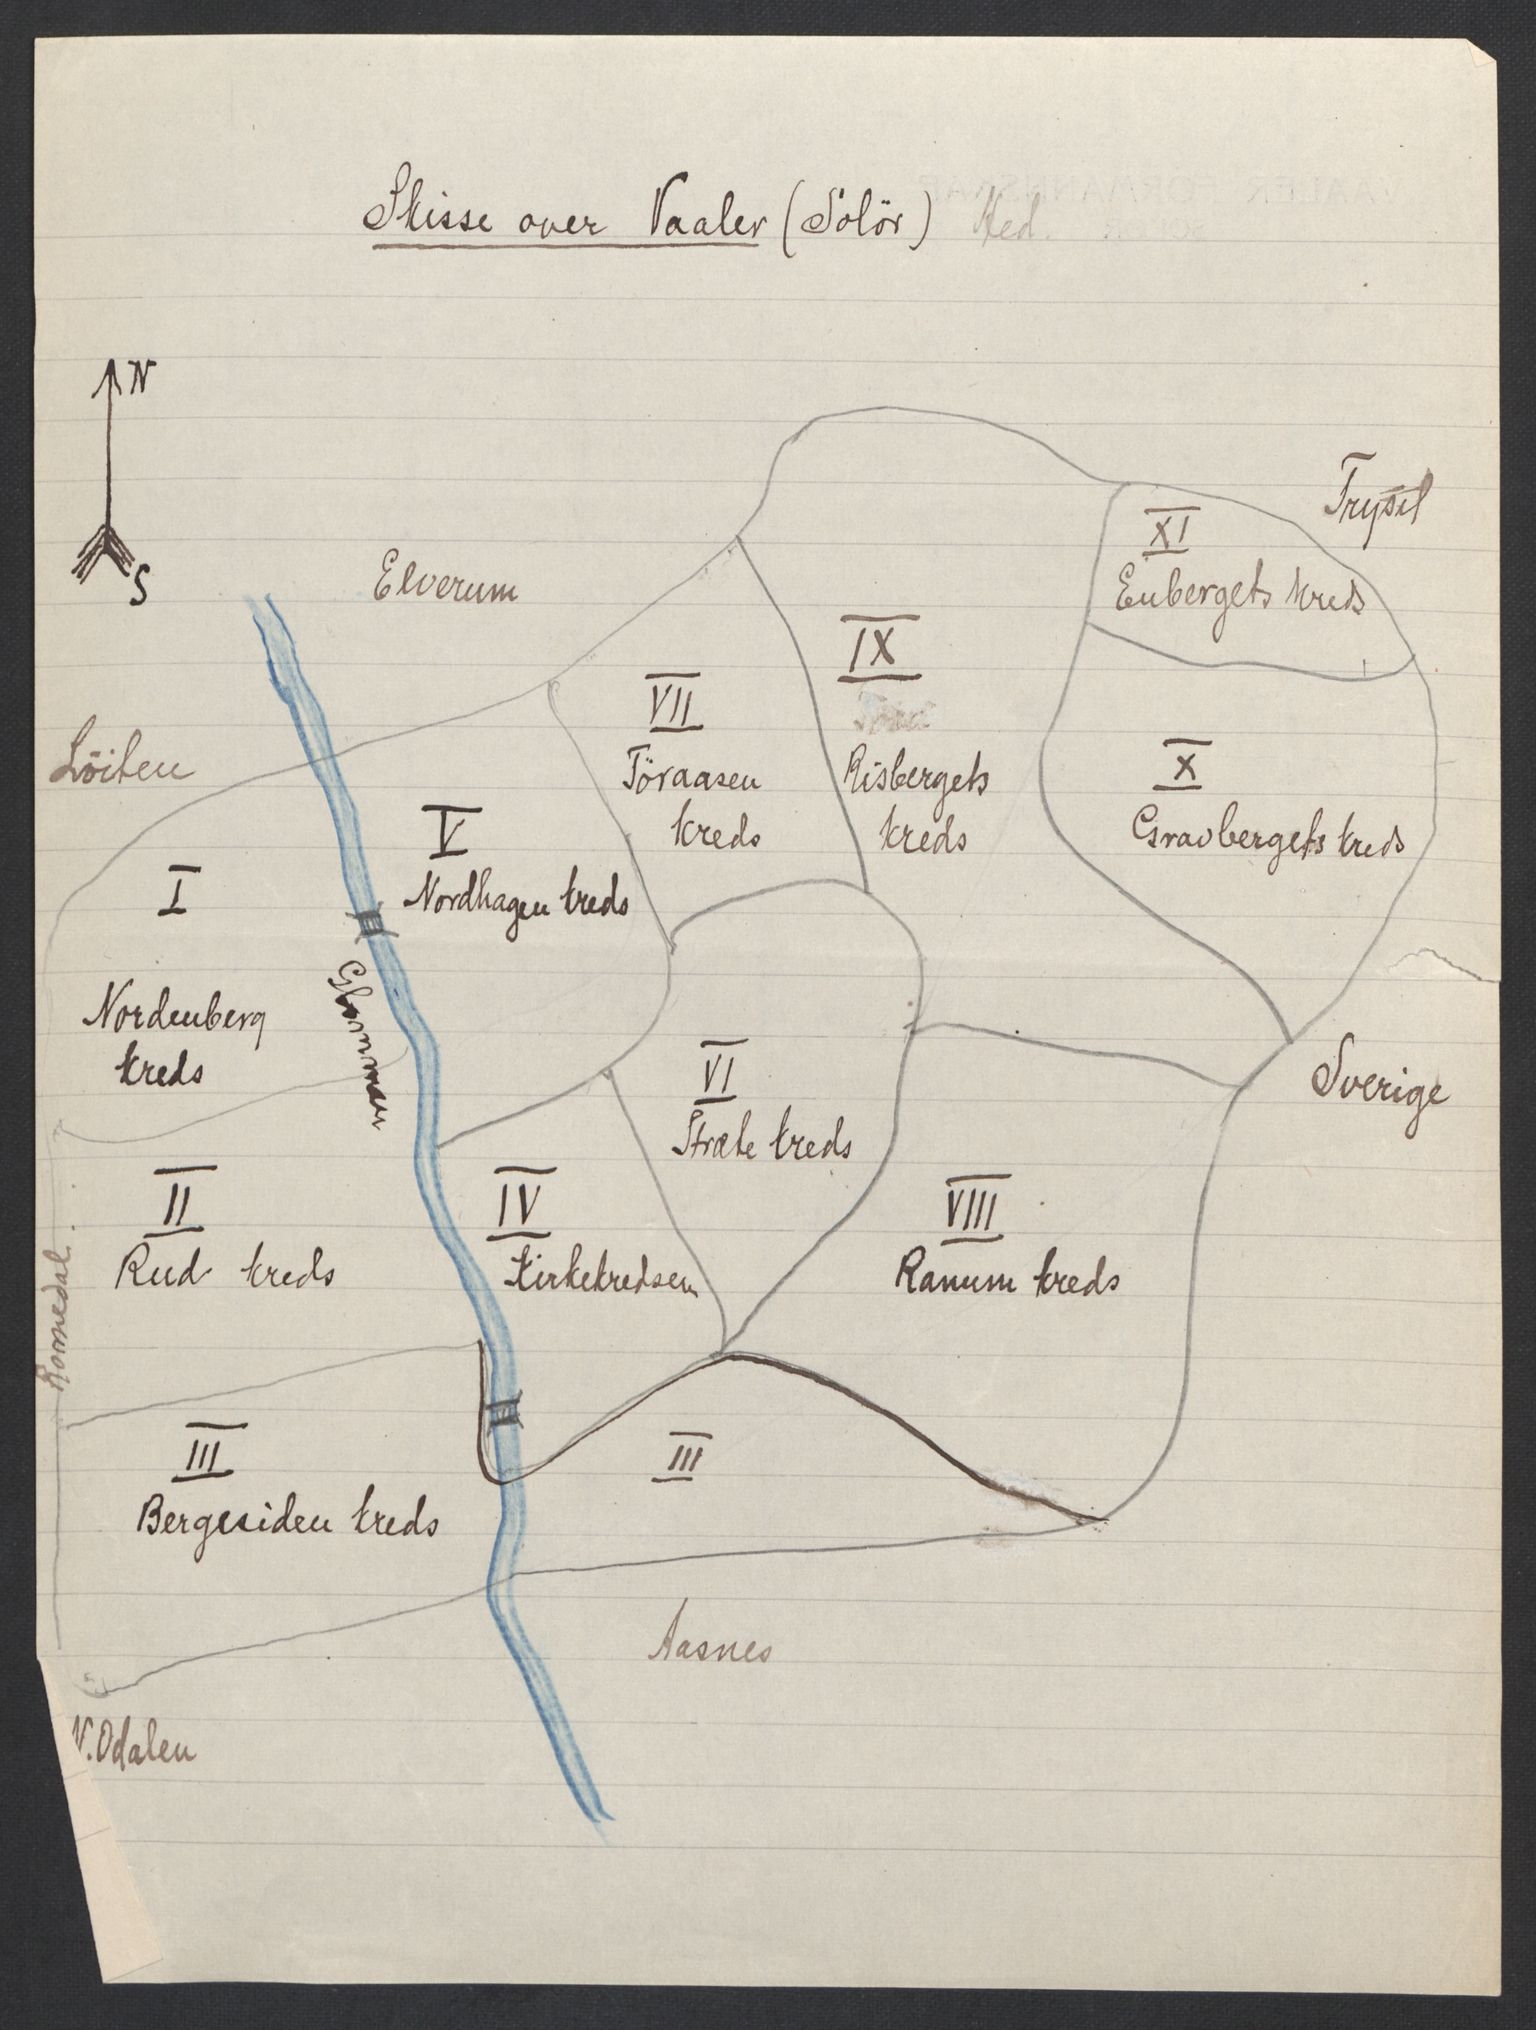 Skisse over Vaaler (Solör) Hed.
N
S
Trysil
XI
Eubergets kreds
Elverum
IX
VII
Risbergets
kreds
Töraasen
kreds
Löiten
X
Gravbergets kreds
V
Nordhagen kreds
I
Nordenberg
kreds
Glommen
VI
Stræte kreds
Sverige
II
Rud kreds
IV
Kirkekredsen
VIII
Ranum kreds
Romedal.
III
Bergesiden kreds
III
Aasnes
N. Odalen